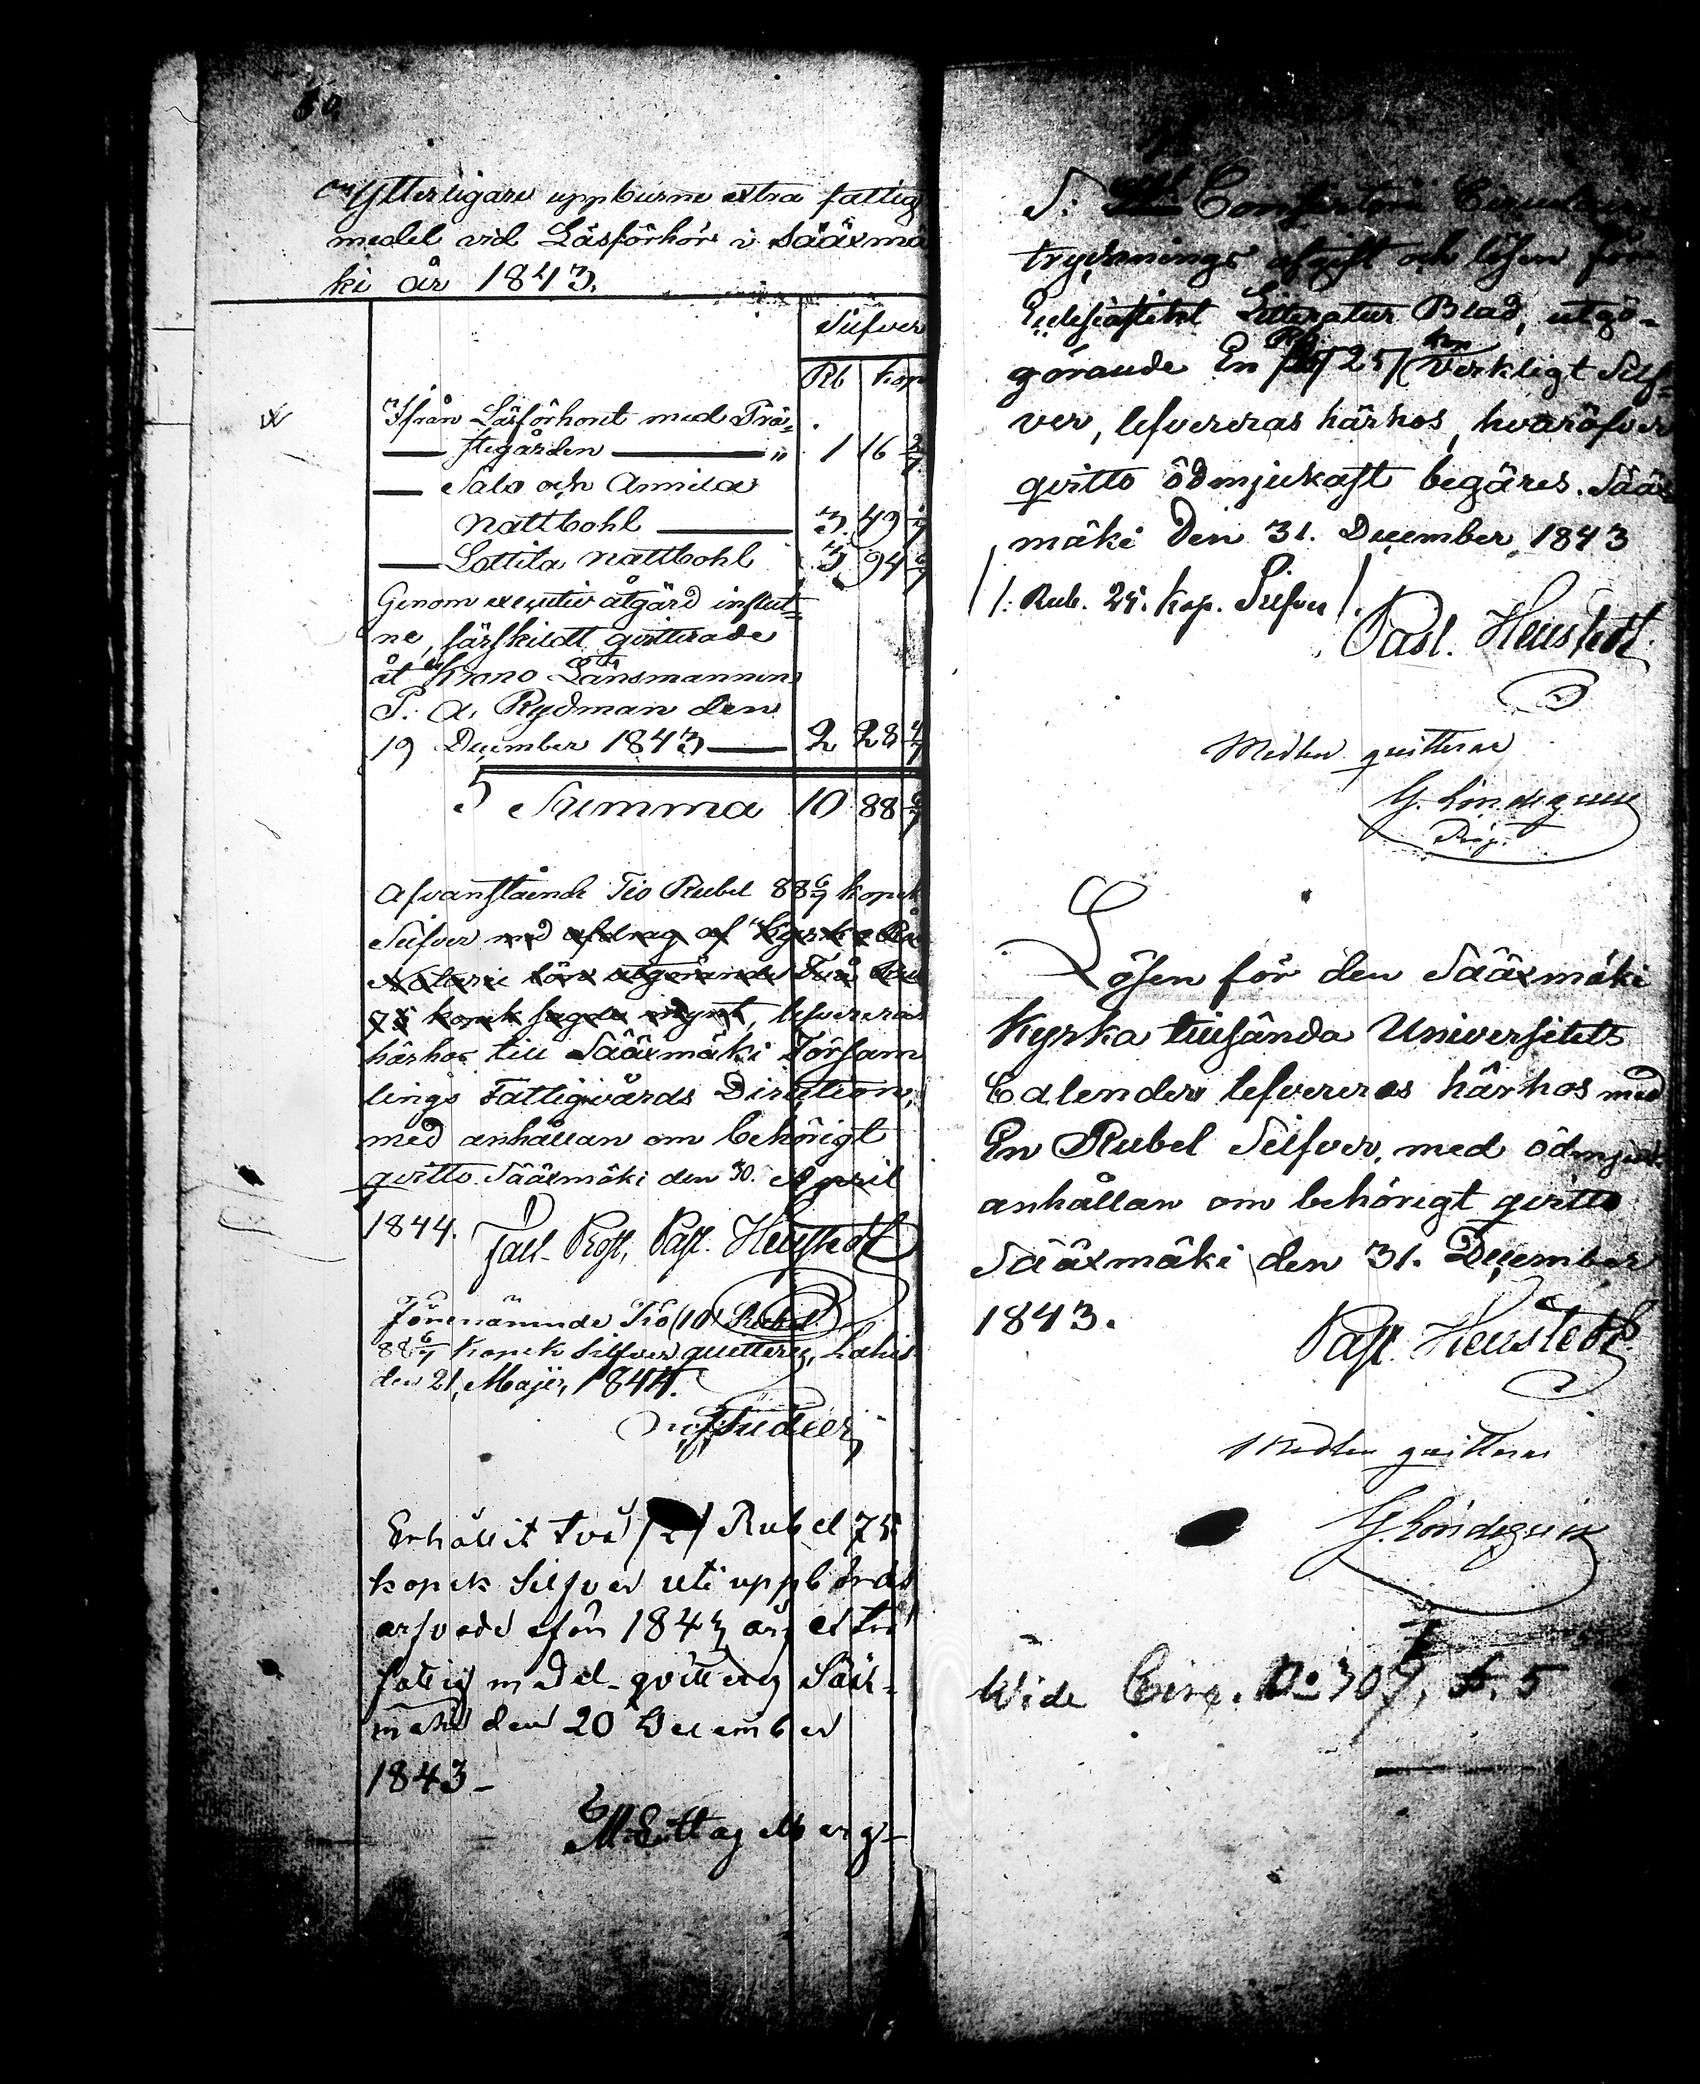 Ytterligare uppburne extra fattig
medel vid Läsförhör i Sääxmä
ki år 1843.
Silfver
Rb kop
Ifrån Läsförhoret med Prä-
— stegården — " 1 16 2/7
— Salo och Annila
Nattbohl — 3 49 1/7
— Lottila Nattbohl 3 94 6/7
Genom executiv åtgärd influt-
ne, särskildt qvitterade
åt Krono Länsmannen
P. A. Rydman den
19 December 1843 — 2 28 4/7
S Summa 10 88 6/7
Afvanstående Tio Rubel 88 6/7 kopek
Silfver med afdrag af Kyrko
Notarie lön utgörande Två Rub
75 kopek sagde mynt, lefvereras
härhos till Sääxmäki Försam
lings Fattigvårds Direction,
med anhållan om behörigt
qvitto. Sääxmäki den 30. April
1844. Past. Heurstedt
Förenämnde Tio (10) Rubel
88 6/7 kopek Silfver quitteras,
den 21 Maji, 1844.
Erhållit två /2/ Rubel 75
kopek Silfver uti uppbörds
arfvode för 1843 års extra
fattig medel - qvitteras Sääx-
mäki den 20 December
1843 -
S:
trycknings afgift och lösen för
Ecclesiastikt Litteratur Blad, utgö-
görande En Rb 25 kop Verkligt Silf-
ver, lefvereras härhos, hvaröfver
qvitto ödmjukast begäres. Sääx
mäki Den 31. December 1843
/: Rub. 25. kop. Silfver /.
Past. Heurstedt
Medlen quitteras
G. Löndegren
Lösen för den Sääxmäki
Kyrka tillsända Universitets
Calender lefvereras härhos med
En Rubel Silfver, med ödmjuk
anhållan om behörigt qvitto
Sääxmäki den 31. December
1843.
Past. Heurstedt
Medlen quitteras
G. Löndegren
Wide Circ. No 307, §. 5